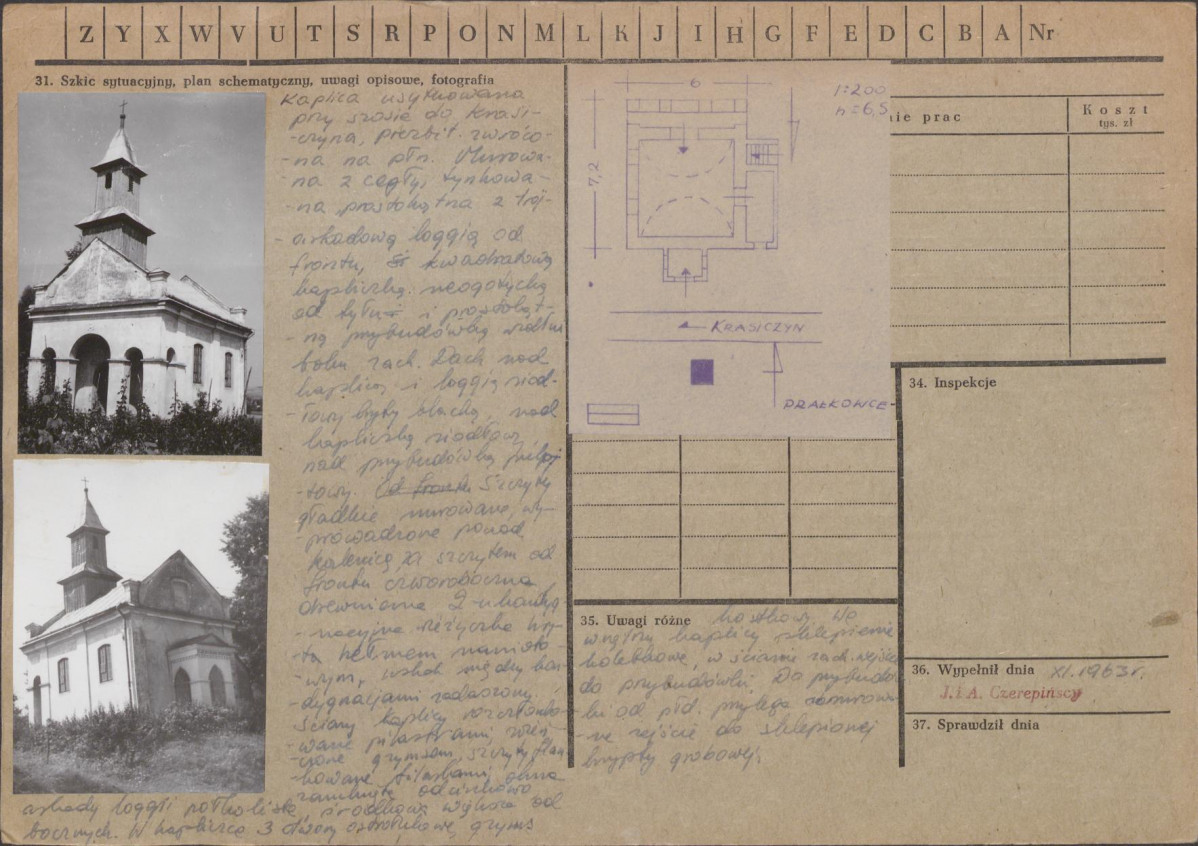 Z Y X W V U T S R P O N M L K J I H G F E D C B A Nr
31. Szkic sytuacyjny, plan schematyczny, uwagi opisowe, fotografia
Kaplica usytuowana
przy szosie do Krasi-
-czyna, prezbit. zwróco-
-na na płn. Murowa-
-na z cegły, tynkowa-
-na, prostokątna z trój-
-arkadową loggią od
frontu, kwadratową
kapliczką neogotycką
od tyłu i prostokąt-
-ną przybudówką wzdłuż
boku zach. Dach nad
kaplicą i loggią siod-
-łowy kryty blachą, nad
kapliczką siodłowy,
nad przybudówką pulpi-
-towy. Od frontu Szczyty
gładkie murowane, wy-
-prowadzone ponad
kalenicę, za szczytem od
frontu czworoboczna
drewniana 2-u kondyg-
-nacyjna wieżyczka kry-
-ta hełmem namioto-
-wym, uskok między kon-
-dygnacjami zadaszony.
Ściany kaplicy rozczłonko-
-wane pilastrami zwień-
-czone gzymsem, szczyty flan-
-kowane filarkami, okna
zamknięte odcinkowo
arkady loggii półkoliste, środkowa większa od
bocznych. W kapliczce 3 otwory ostrołukowe, gzyms
6
1:200
h=6,5
7,2
← KRASICZYN
PRAŁKOWCE
nie prac
Koszt
tys. zł
34. Inspekcje
35. Uwagi różne
kostkowy. We
wnętrzu kaplicy sklepienie
kolebkowe, w ścianie zach. wejście
do przybudówki. Do przybudów-
-ki od płd. przylega
-ne zejście do sklepionej
krypty grobowej.
36. Wypełnił dnia XI.1963r.
J. i A. Czerepińscy
37. Sprawdził dnia